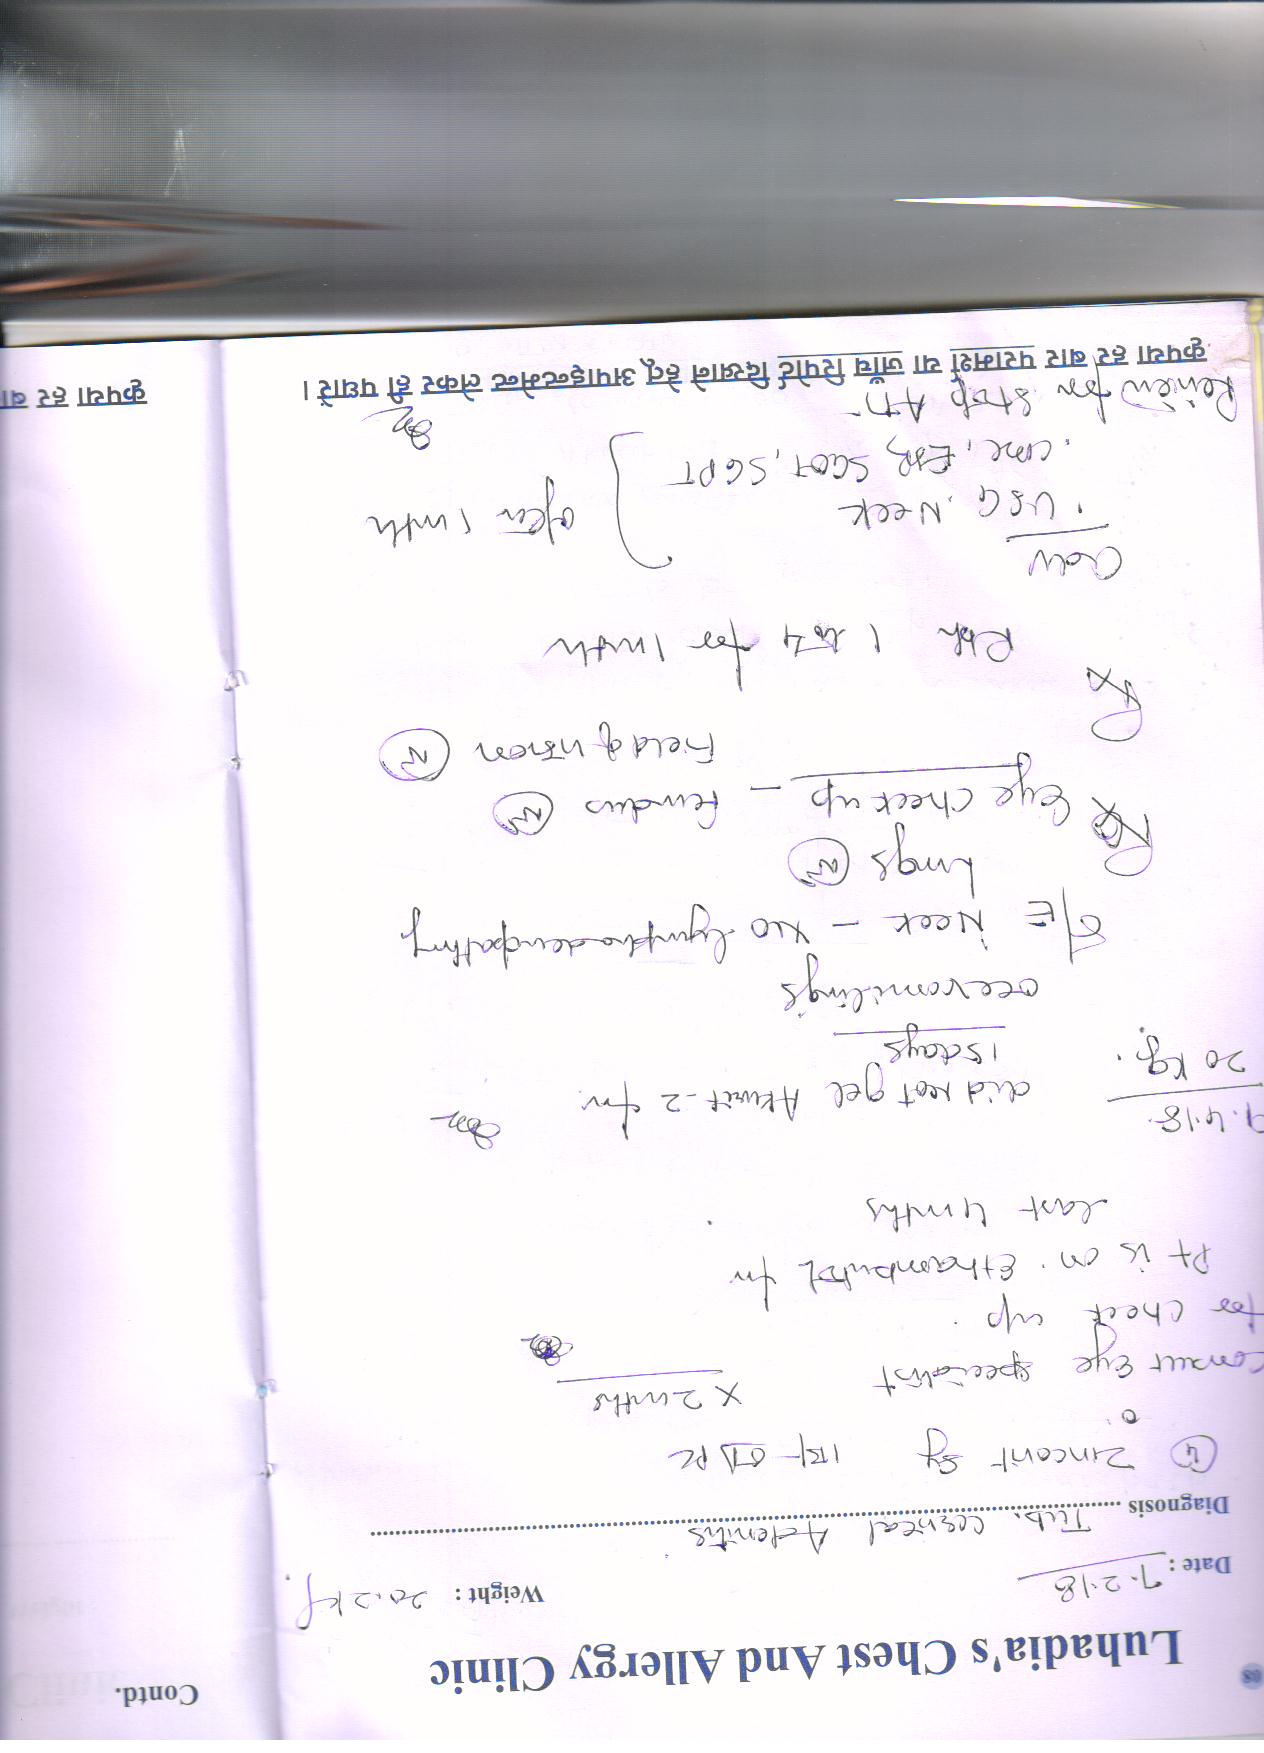 08
Luhadia's Chest And Allergy Clinic
Date : 7.2.18 Weight : 20.2 kg.
Diagnosis Tub. cervical Adenitis
④ Zincovit Sy
x 2 mths
consult Eye specialist
for check up.
Pt is on Ethambutol for
last 4 mths
9.4.18
20 kg.
did not get Akurit-2 for
15 days
occ vomitings
O/E Neck - No lymphadenpathy
Lungs Ⓝ
Eye check up - Fundus Ⓝ
Field of vision Ⓝ
Rx
Rpt 1 to 4 for 1 mth
Adv
. USG. Neck
. CBC, ESR, SGOT, SGPT
after 1 mth
Review for stop ATT
कृपया हर बार परामर्श या जाँच रिपोर्ट दिखाने हेतु अपाइन्टमेन्ट लेकर ही पधारें ।
Contd.
कृपया हर बा